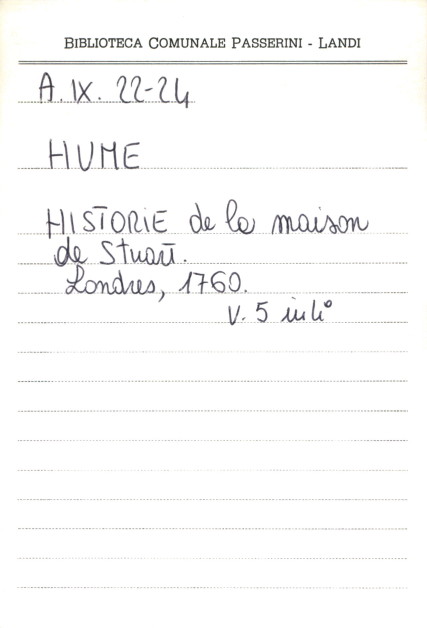 BIBLIOTECA COMUNALE PASSERINI - LANDI
A. IX. 22-24
HUME
HISTORIE de la maison
de Stuart.
Londres, 1760.
V. 5 in 4°